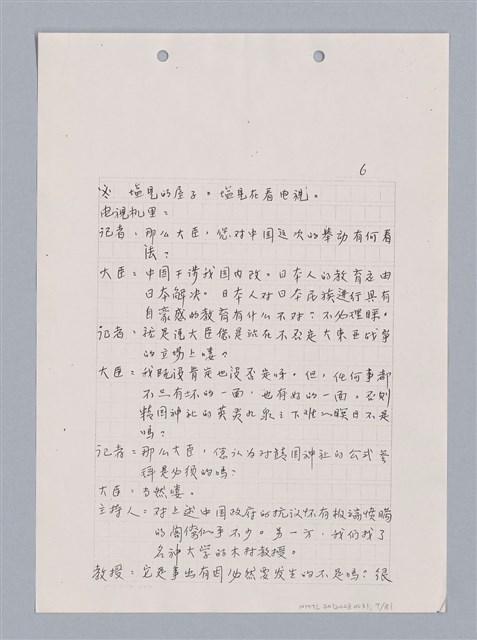 6
※ 塩見的屋子。塩見在看电视。
电视机里：
记者：那么大臣，您对中国这次的举动有何看
法？
大臣：中国干涉我国内政。日本人的教育应由
日本解决。日本人对日本民族进行具有
自豪感的教育有什么不对？不必理睬。
记者：就是说大臣您是站在不否定大东亚战争
的立场上喽？
大臣：我既没肯定也没否定呀。但，任何事都
不只有坏的一面，也有好的一面。否则
靖国神社的英灵九泉之下难以瞑目不是
吗？
记者：那么大臣，您认为对靖国神社的公式参
拜是必须的吗？
大臣：当然喽。
主持人：对上述中国政府的抗议怀有极端愤懑
的阁僚似乎不少。另一方，我们找了
名神大学的木村教授。
教授：它是事出有因必然要发生的不是吗？很